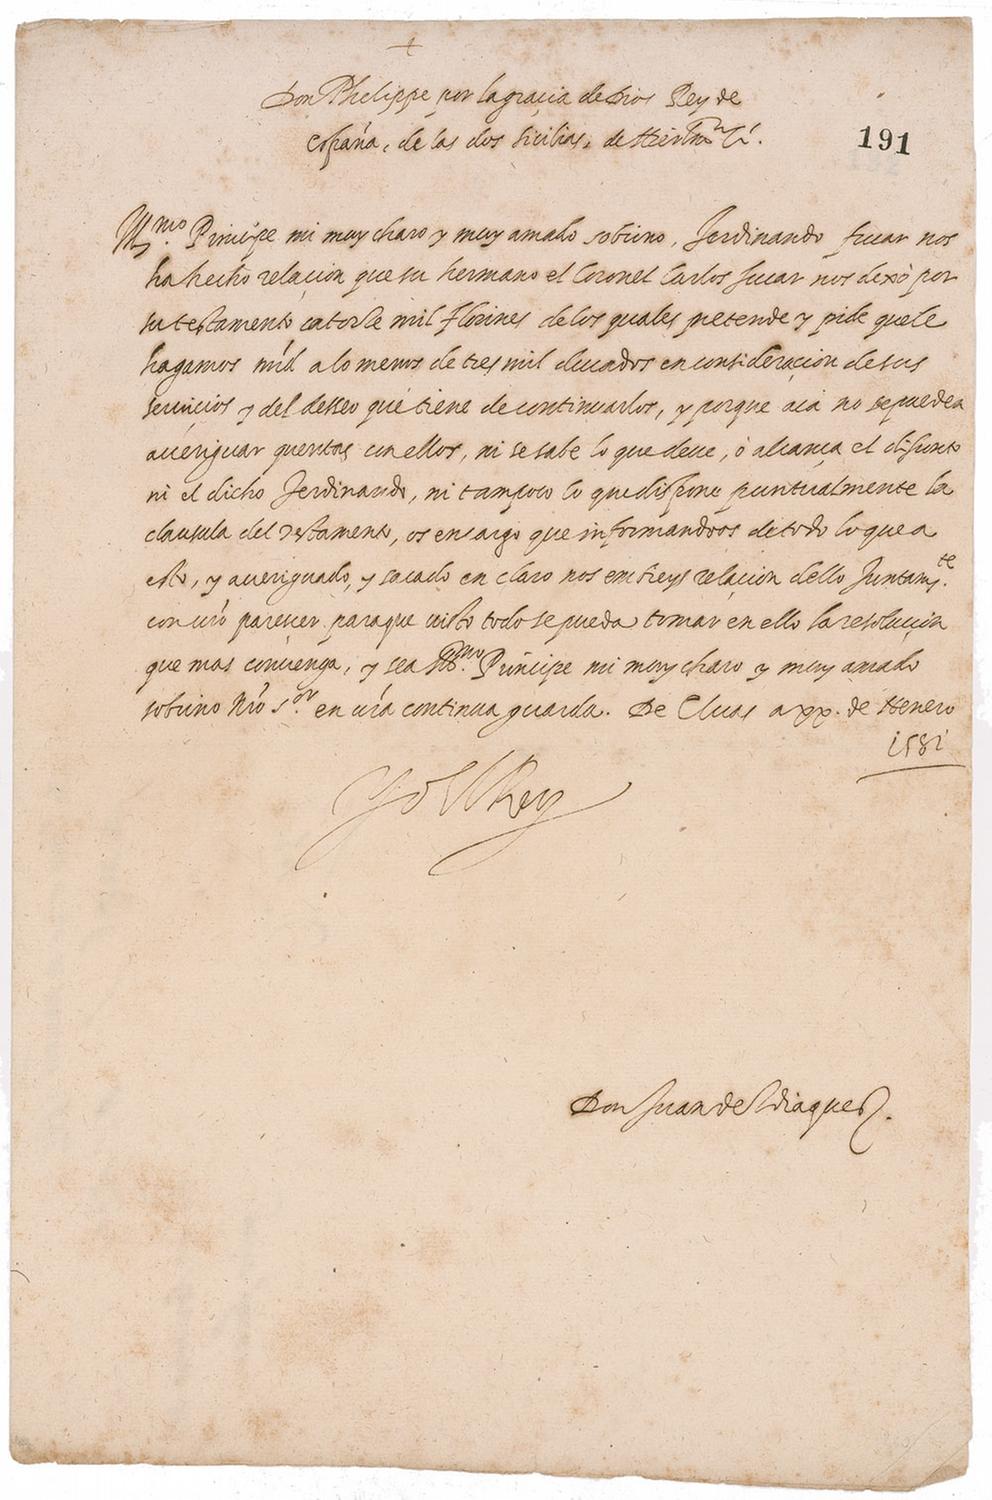 +
Don Phelippe por la gracia de Dios Rey de
España, de las dos Sicilias, de Hierlm &c.
191
Ill^mo. Principe mi muy charo y muy amado sobrino, Ferdinando fucar nos
ha hecho relacion que su hermano el Coronel Carlos fucar nos dexó por
su testamento catorse mil florines de los quales pretende y pide que le
hagamos mrd a lo menos de tres mil ducados en consideraçion de sus
seruicios y del desseo que tiene de continuarlos, y porque acá no se pueden
aueriguar quentas con ellos, ni se sabe lo que deue, o alcança el difunto
ni el dicho Ferdinando, ni tampoco lo que dispone puntualmente la
clausula del testamento, os encargo que informandoos de todo lo que a
esto, y aueriguado, y sacado en claro nos embieys relacion dello Juntam^te.
con vrō pareçer para que visto todo se pueda tomar en ello la resoluçion
que mas conuenga, y sea Ill^mo. Principe mi muy charo y muy amado
sobrino Nrō s^or. en vrā continua guarda. De Eluas a xx. de Henero
1581
Yo El Rey
Don Juan de Idiaquez.